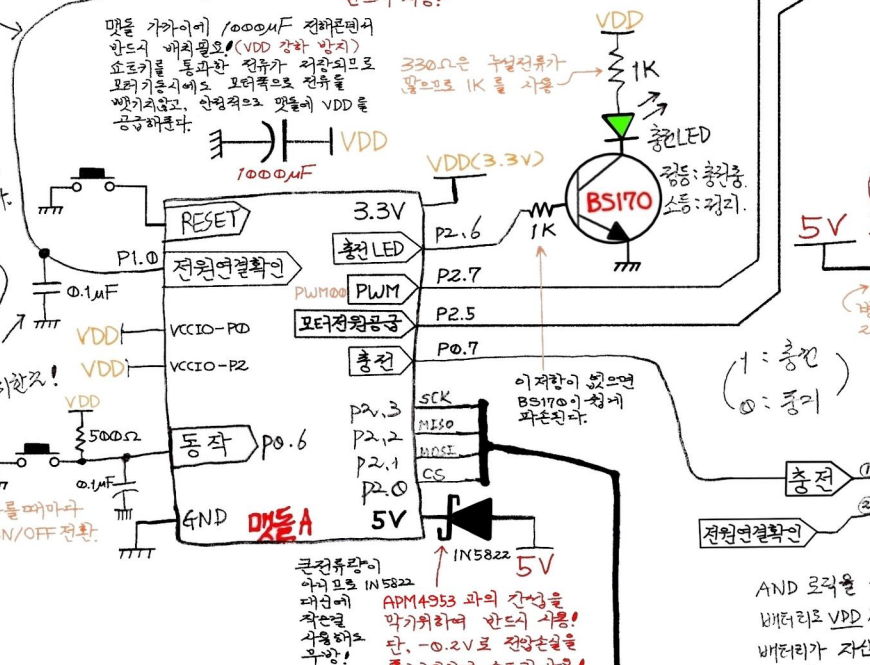 맷돌 가까이에 1000μF 전해콘덴서
반드시 배치필요! (VDD 강하 방지)
쇼트키를 통과한 전류가 저장되므로
모터기동시에도 모터쪽으로 전류를
뺏기지않고, 안정적으로 맷돌에 VDD를
공급해준다.
1000μF
VDD
VDD
330Ω은 구설전류가
많으므로 1K를 사용
1K
충전LED
점등: 충전중.
소등: 정지.
BS170
1K
VDD(3.3V)
5V
RESET
3.3V
P1.0
전원연결확인
충전LED
P2.6
0.1μF
PWM00
PWM
P2.7
모터전원공급
P2.5
VDD
VCCIO-P0
충전
P0.7
VDD
VCCIO-P2
1 : 충전
0 : 중지
이 저항이 없으면
BS170이 쉽게
파손된다.
VDD
500Ω
P2.3
SCK
P2.2
MISO
P2.1
MOSI
P2.0
CS
동작
P0.6
0.1μF
GND
맷돌A
5V
1N5822
5V
충전
①
②
전원연결확인
ON/OFF전환.
큰전류량이
아니므로 1N5822
대신에
작은걸
사용해도
무방!
APM4953 과의 간섭을
막기위하여 반드시 사용!
단, -0.2V로 전압손실을
AND 로직을
배터리로 VDD
배터리가